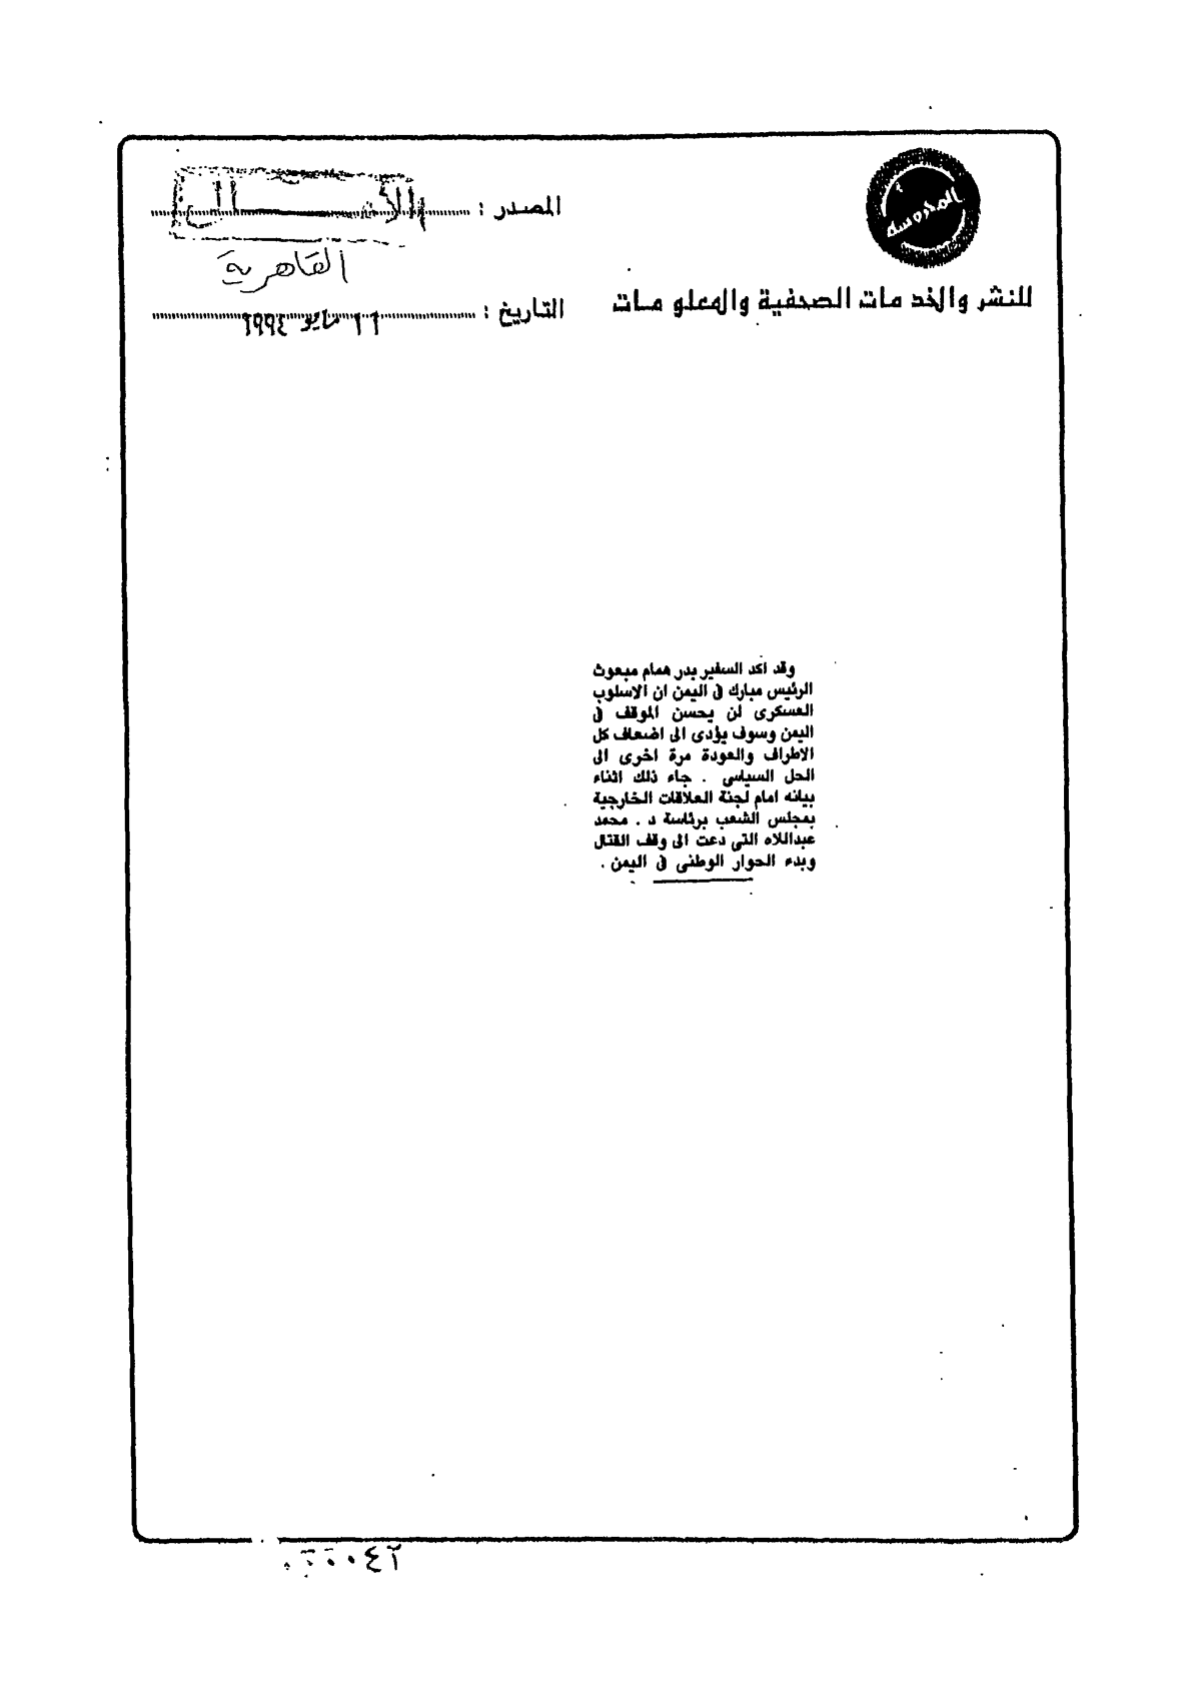 المحروسة
للنشر والخدمات الصحفية والمعلومات
المصدر :
القاهرية
التاريخ : ١٦ مايو ١٩٩٤
وقد اكد السفير بدر همام مبعوث
الرئيس مبارك فى اليمن ان الاسلوب
العسكرى لن يحسن الموقف فى
اليمن وسوف يؤدى الى اضعاف كل
الاطراف والعودة مرة اخرى الى
الحل السياسى . جاء ذلك اثناء
بيانه امام لجنة العلاقات الخارجية
بمجلس الشعب برئاسة د . محمد
عبداللاه التى دعت الى وقف القتال
وبدء الحوار الوطنى فى اليمن .